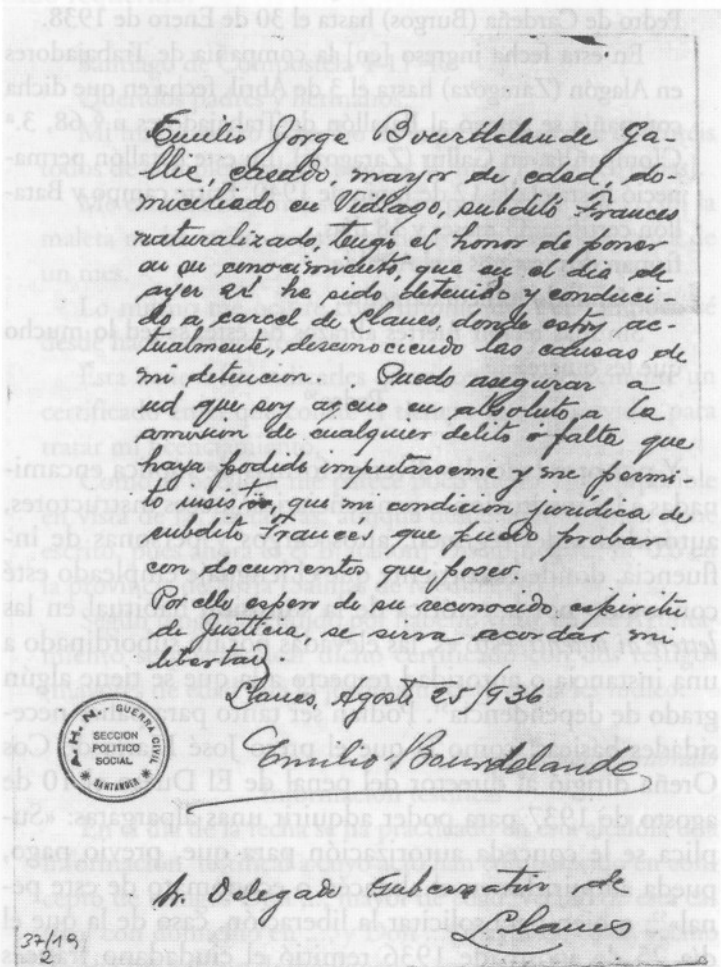 Emilio Jorge Bourdelande Ga-
llie casado, mayor de edad, do-
miciliado en Vidiago, subdito Frances
naturalizado, tengo el honor de poner
en su conocimiento, que en el dia de
ayer 24 he sido detenido y conduci-
do a carcel de Llanes, donde estoy ac-
tualmente, desconociendo las causas de
mi detencion. Puedo asegurar a
ud que soy ajeno en absoluto, a la
omision de cualquier delito ó falta que
haya podido imputárseme y me permi-
to insistir, que mi condicion juridica de
subdito Francés, que puedo probar
con documentos que poseo.
Por ello espero de su reconocido espiritu
de Justicia, se sirva acordar mi
libertad.
Llanes, Agost 25/936
Emilio Bourdelande
A.H.N. - GUERRA CIVIL
SECCION
POLITICO
SOCIAL
* SANTANDER *
Sr. Delegado Gubernativo de
Llanes
37/19
2